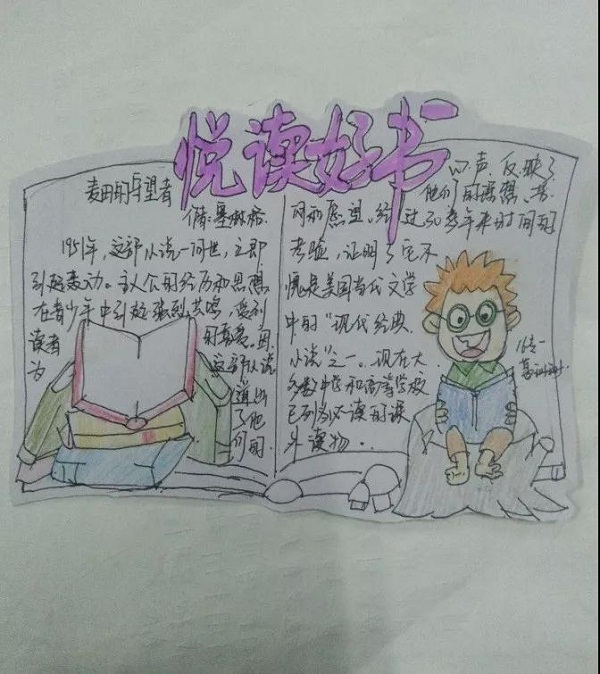 悦读好书
麦田的守望者
1951年,这部小说一问世,立即
引起轰动。主人公的经历和思想
在青少年中引起强烈共鸣,受到
读者的喜爱。因
为这部小说
道出
了他
们的
心声,反映了
他们的理想、苦
闷和愿望。经过30多年来时间的
考验,证明了它不
愧是美国当代文学
中的"现代经典
小说"之一。现在大
多数中学和高等学校
已列为必读的课
外读物..